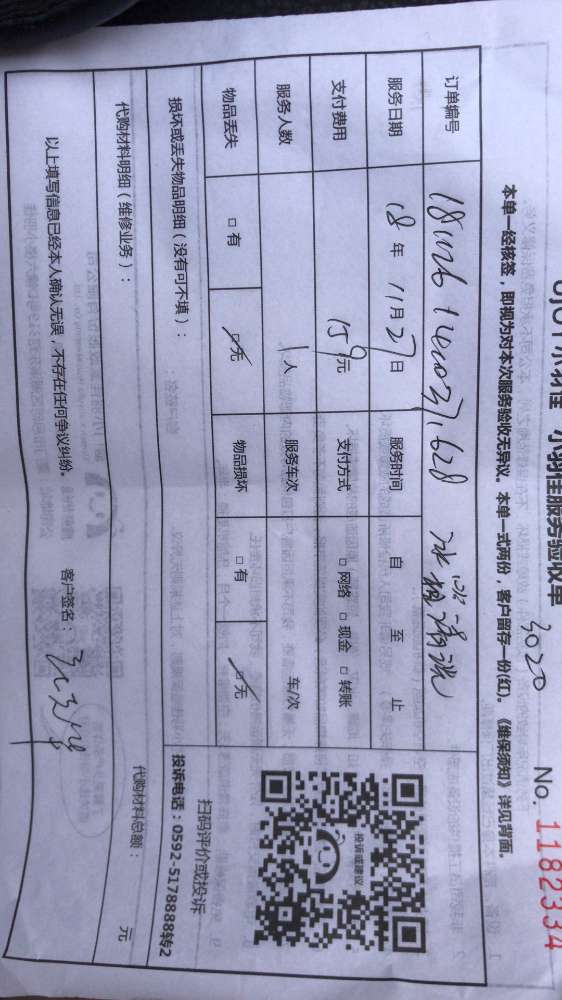 小羽佳服务验收单
3020
No. 1182334
本单一经核签，即视为对本次服务验收无异议。本单一式两份，客户留存一份(红)。《维保须知》详见背面。
订单编号
服务日期 18 年 11 月 27 日 服务时间 自 至 止
支付费用 159 元 支付方式 □ 网络 □ 现金 □ 转账
服务人数 1 人 服务车次 车/次
物品丢失 □ 有 □ 无 物品损坏 □ 有 □ 无
投诉或建议
扫码评价或投诉
投诉电话：0592-5178888转2
损坏或丢失物品明细（没有可不填）：
代购材料明细（维修业务）： 代购材料总额： 元
以上填写信息已经本人确认无误，不存在任何争议纠纷。 客户签名：